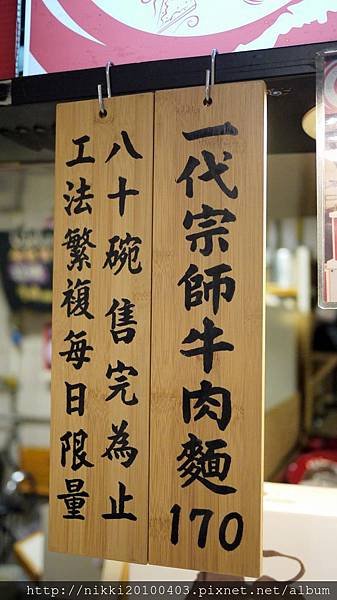 一代宗師牛肉麵170
八十碗售完為止
工法繁複每日限量
http://nikki20100403.pixnet.net/album